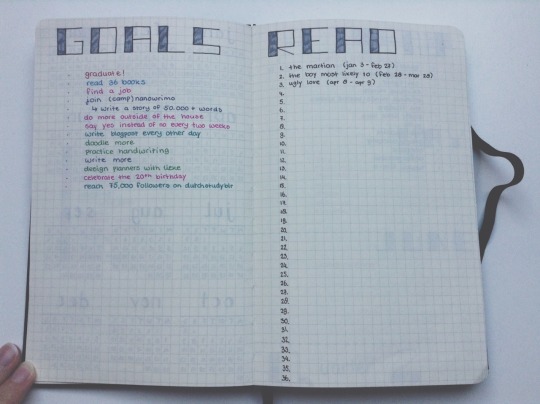 GOALS
graduate!
read 36 books
find a job
join (camp) nanowrimo
↳ write a story of 50.000+ words
do more outside of the house
say yes instead of no every two weeks
write blogpost every other day
doodle more
practice handwriting
write more
design planners with
celebrate the 20th birthday
reach 75,000 followers on dutchstudyblr
READ
1. the martian (jan 3 - feb 28)
2. the boy most likely to (feb 28 - mar 28)
3. ugly love (apr 8 - apr 9)
4.
5.
6.
7.
8.
9.
10.
11.
12.
13.
14.
15.
16.
17.
18.
19.
20.
21.
22.
23.
24.
25.
26.
27.
28.
29.
30.
31.
32.
33.
34.
35.
36.